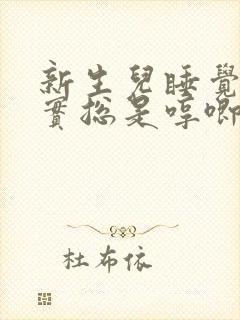 新生兒睡覺
實總是哼唧
杜布依